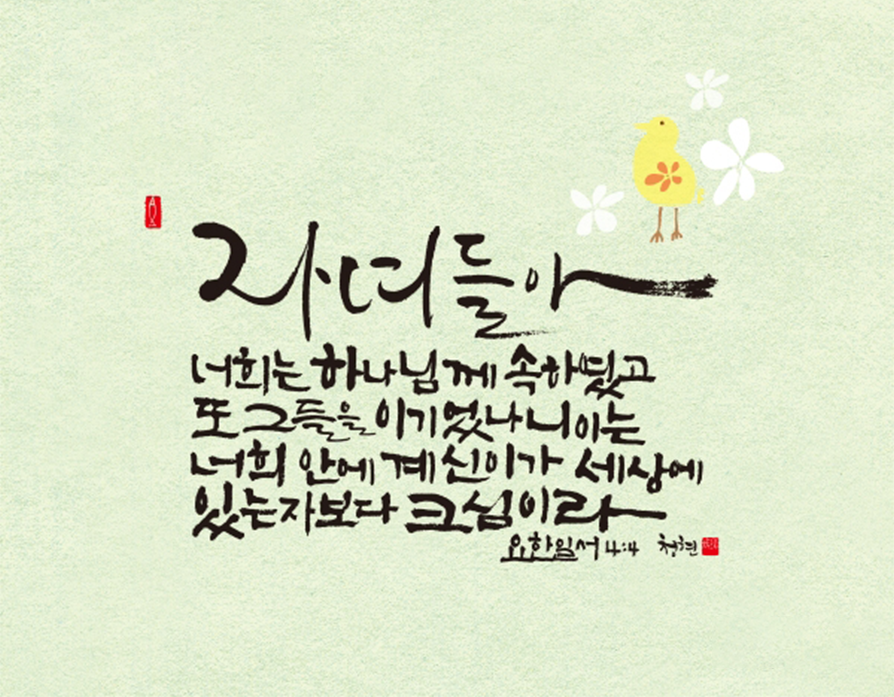 자녀들아
너희는 하나님께 속하였고
또 그들을 이기었나니 이는
너희 안에 계신 이가 세상에
있는 자보다 크심이라
요한일서 4:4 청현